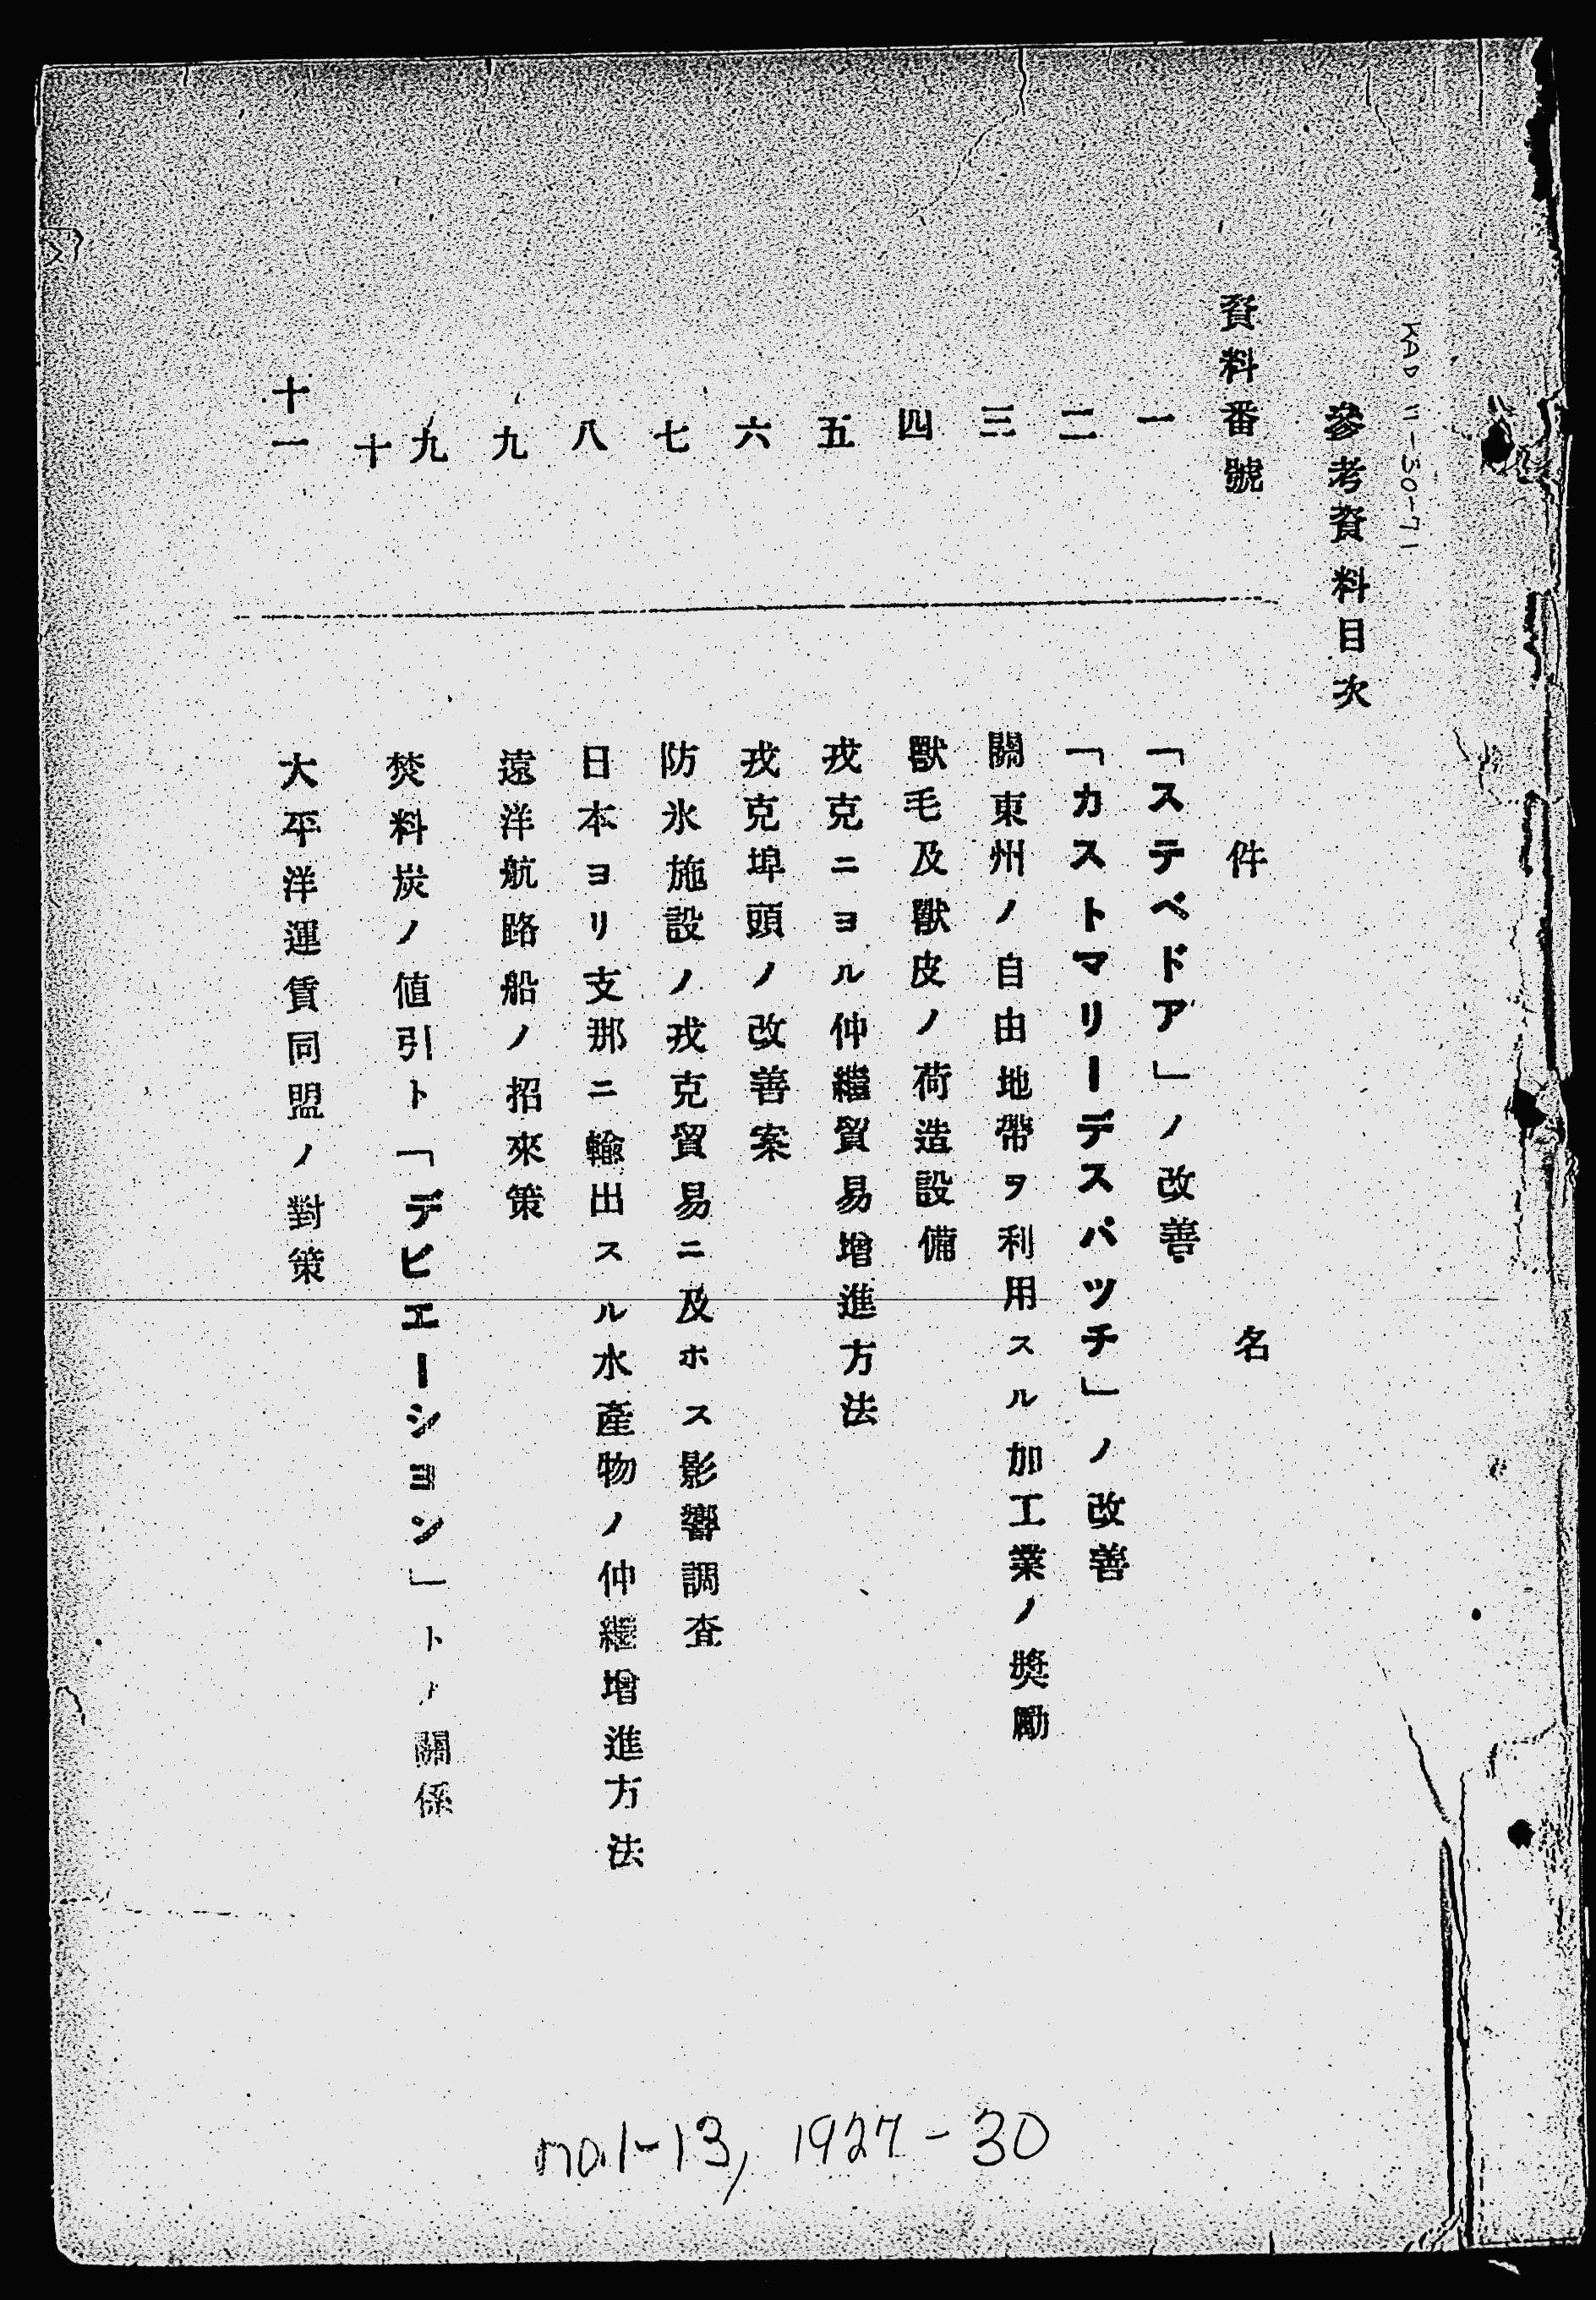 KAD II-50-71
參考資料目次
資料番號 件名
一 「ステベドア」ノ改善
二 「カストマリーデスパッチ」ノ改善
三 關東州ノ自由地帶ヲ利用スル加工業ノ奬勵
四 獸毛及獸皮ノ荷造設備
五 戎克ニヨル仲繼貿易增進方法
六 戎克埠頭ノ改善案
七 防氷施設ノ戎克貿易ニ及ホス影響調査
八 日本ヨリ支那ニ輸出スル水產物ノ仲繼增進方法
九 遠洋航路船ノ招來策
九十 焚料炭ノ値引ト「デビエーション」トノ關係
十一 大平洋運賃同盟ノ對策
no.1-13, 1927-30